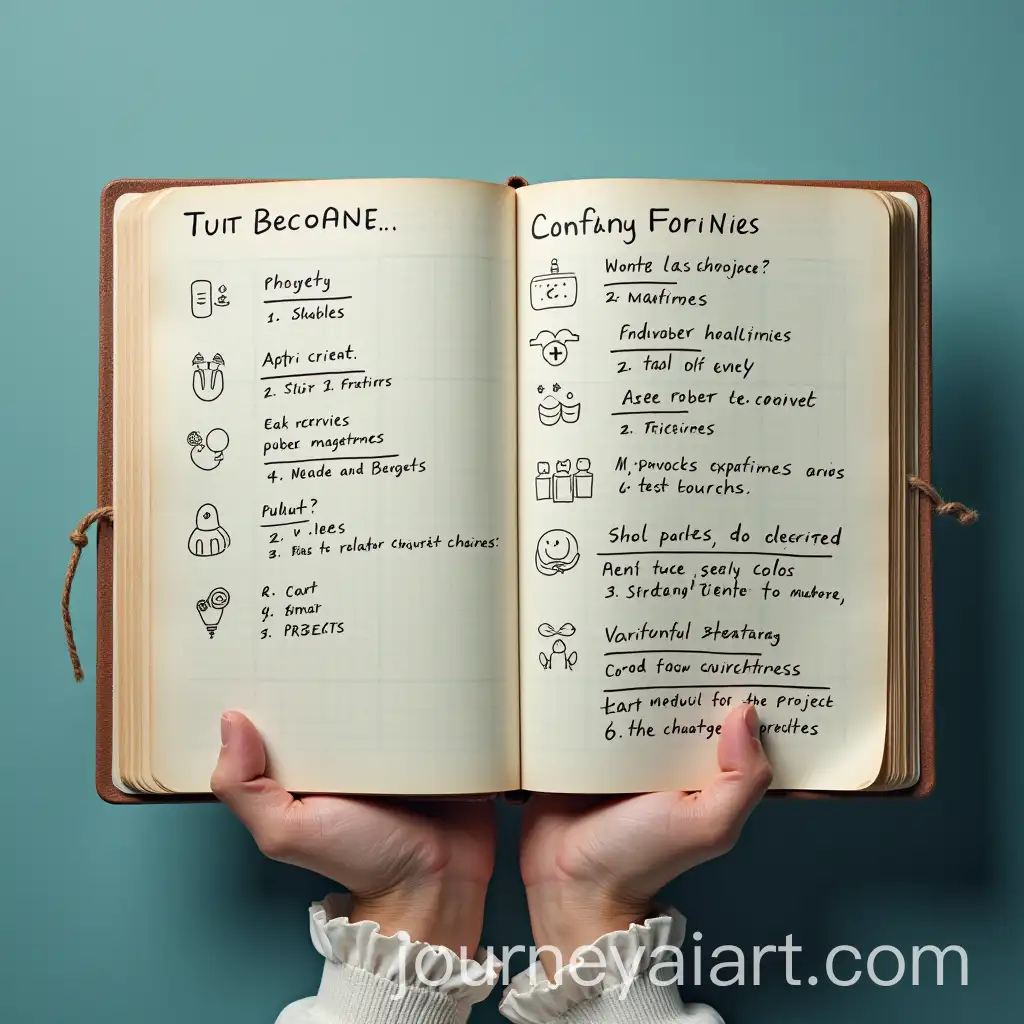 TUIT BECOANE...
Phogety
1. Skables
Aptri crieat.
2. Slur 2. Fratirs
Eak rcrvies
pober magetrncs
4. Neade and Bergets
Puluut?
2. v .lees
3. to relator chaines:
R. Cart
9. Smar
3. PRBEETS
Confany ForiNies
Wonte las chojoce?
2. Mastimes
Fndivober heallimies
2. taal off evely
Asee rober te. coaivet
2. Triceires
M, pavocks cxpatimes arios
6. test tourchs.
Shol partes, do decrited
Aent tuce, sealy colos
3. to mubore,
Varitunful
Co-od foow
tart meduil for the Project
6. the chaatge
journeyaiart.com